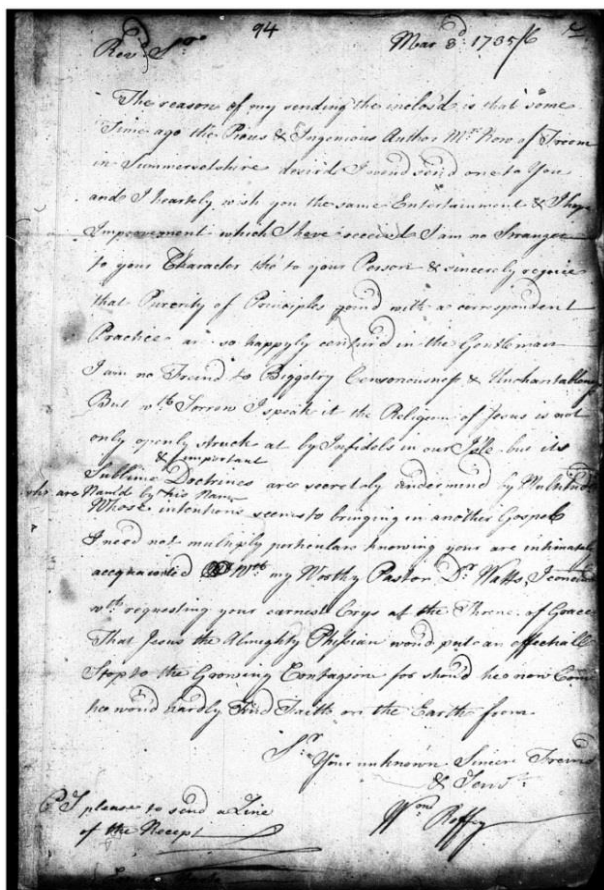 94
Mar 8d: 1735/6
Revd Sr
The reason of my sending the inclosd is that some
Time ago the Pious & Ingenious Author Mrs Row of Froom
in Summersetshire desird I woud send one to You
and I heartely wish you the same Entertainment & I hope
Improvement which I have receivd I am no Stranger
to your Character tho' to your Person & sincerely rejoice
that Purerity of Principles joind with a correspondent
Practice are so happyly in the Gentleman
I am no Friend to Biggotry Censoriousness &
But wth Sorrow I speak it the Religion of Jesus is not
only openly struck at by Infidels in our Isle but its
& important
Sublime Doctrines are secretely undermind by Multitudes
who are Namd by his Name
Whose intentions seems to bringing in another Gospel
I need not multiply perticulars knowing your are intimately
acquainted Wth my Worthy Pastor Dr Watts, I conclude
wth requesting your earnest Crys at the Throne of Grace
That Jesus the Almighty Phisian woud put an effectuall
Stop to the Growing Contagion for shoud he now Come
he woud hardly find Faith on the Earth from
Sr
Your unknown Sincere Freind
& Servt
Wm Roffey
PS please to send a Line
of the Receipt